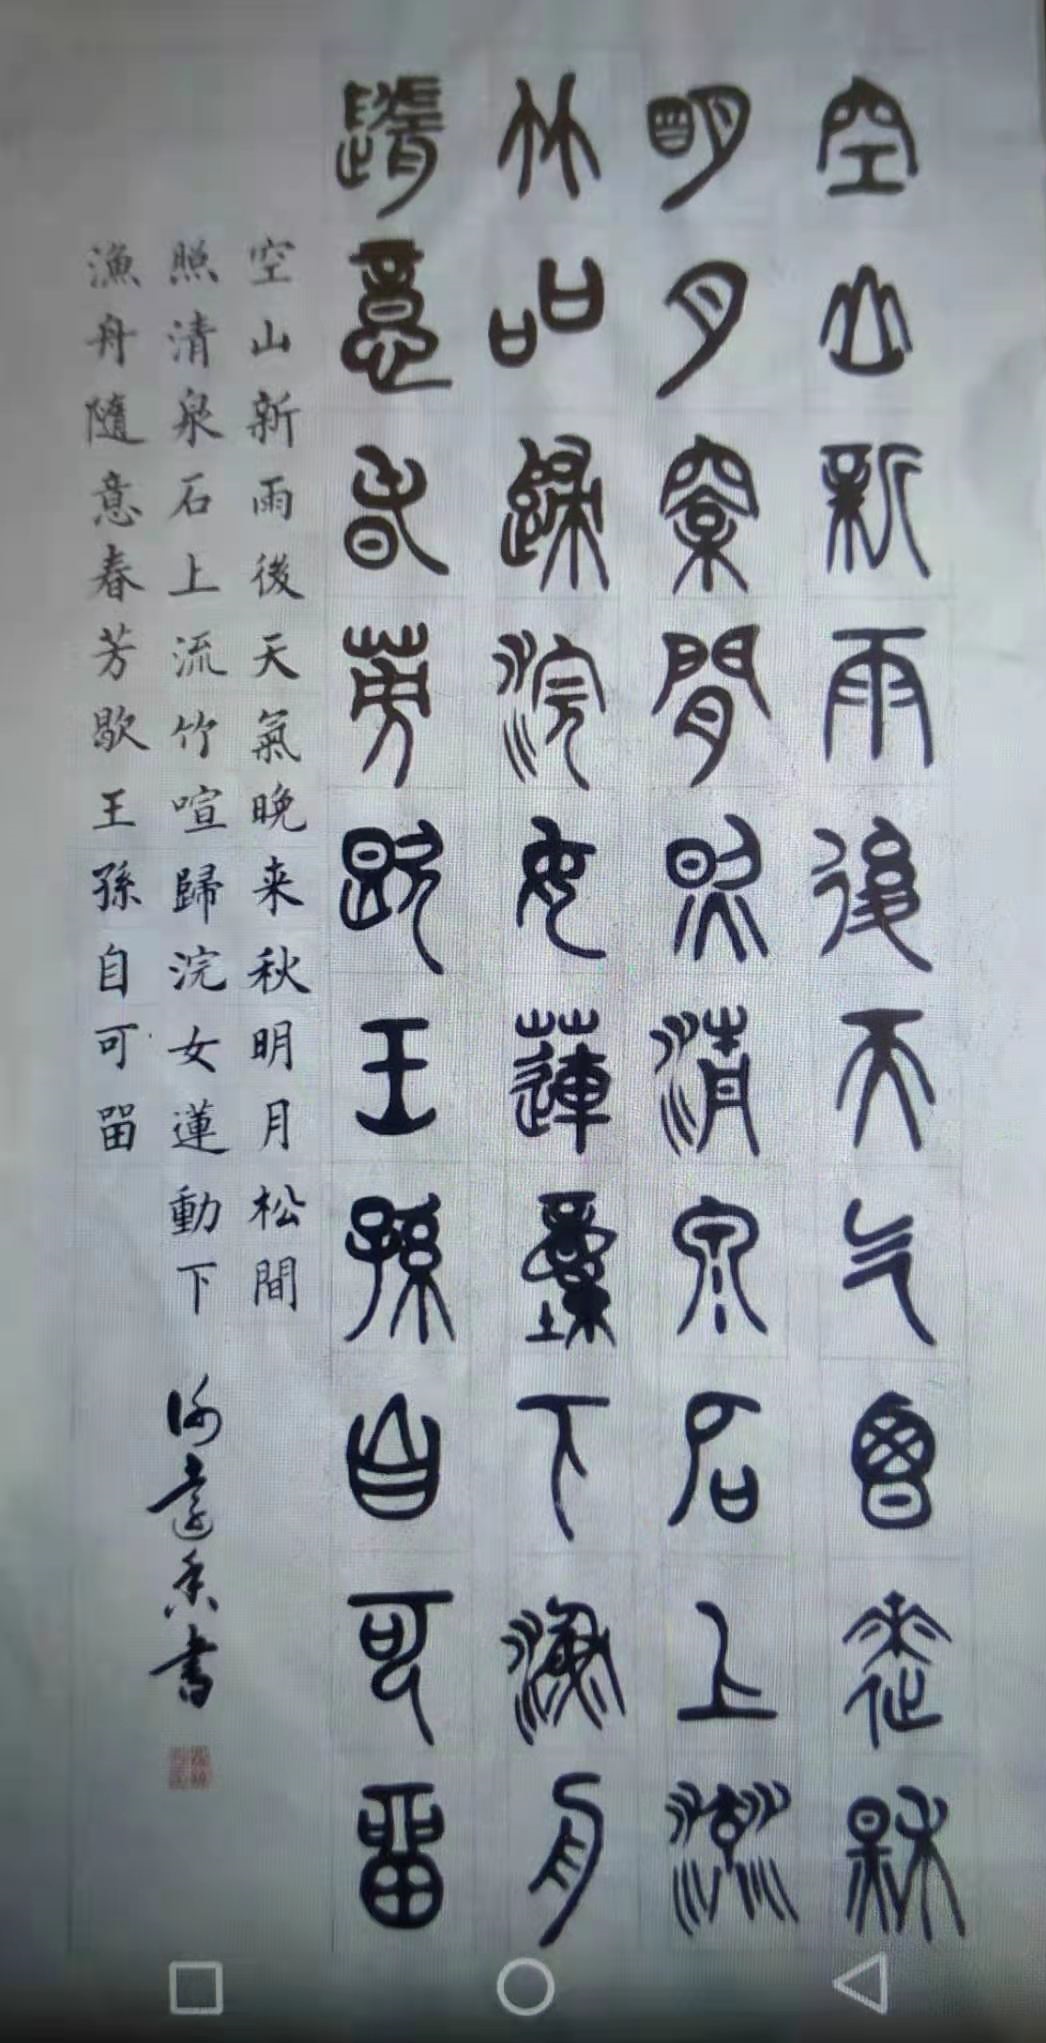 空山新雨後天气晚来秋
明月松間照清泉石上流
竹吅歸浣女蓮動下漁舟
隨意春芳歇王孫自可留
空山新雨後天氣晚来秋明月松間
照清泉石上流竹喧歸浣女蓮動下
漁舟隨意春芳歇王孫自可留
書